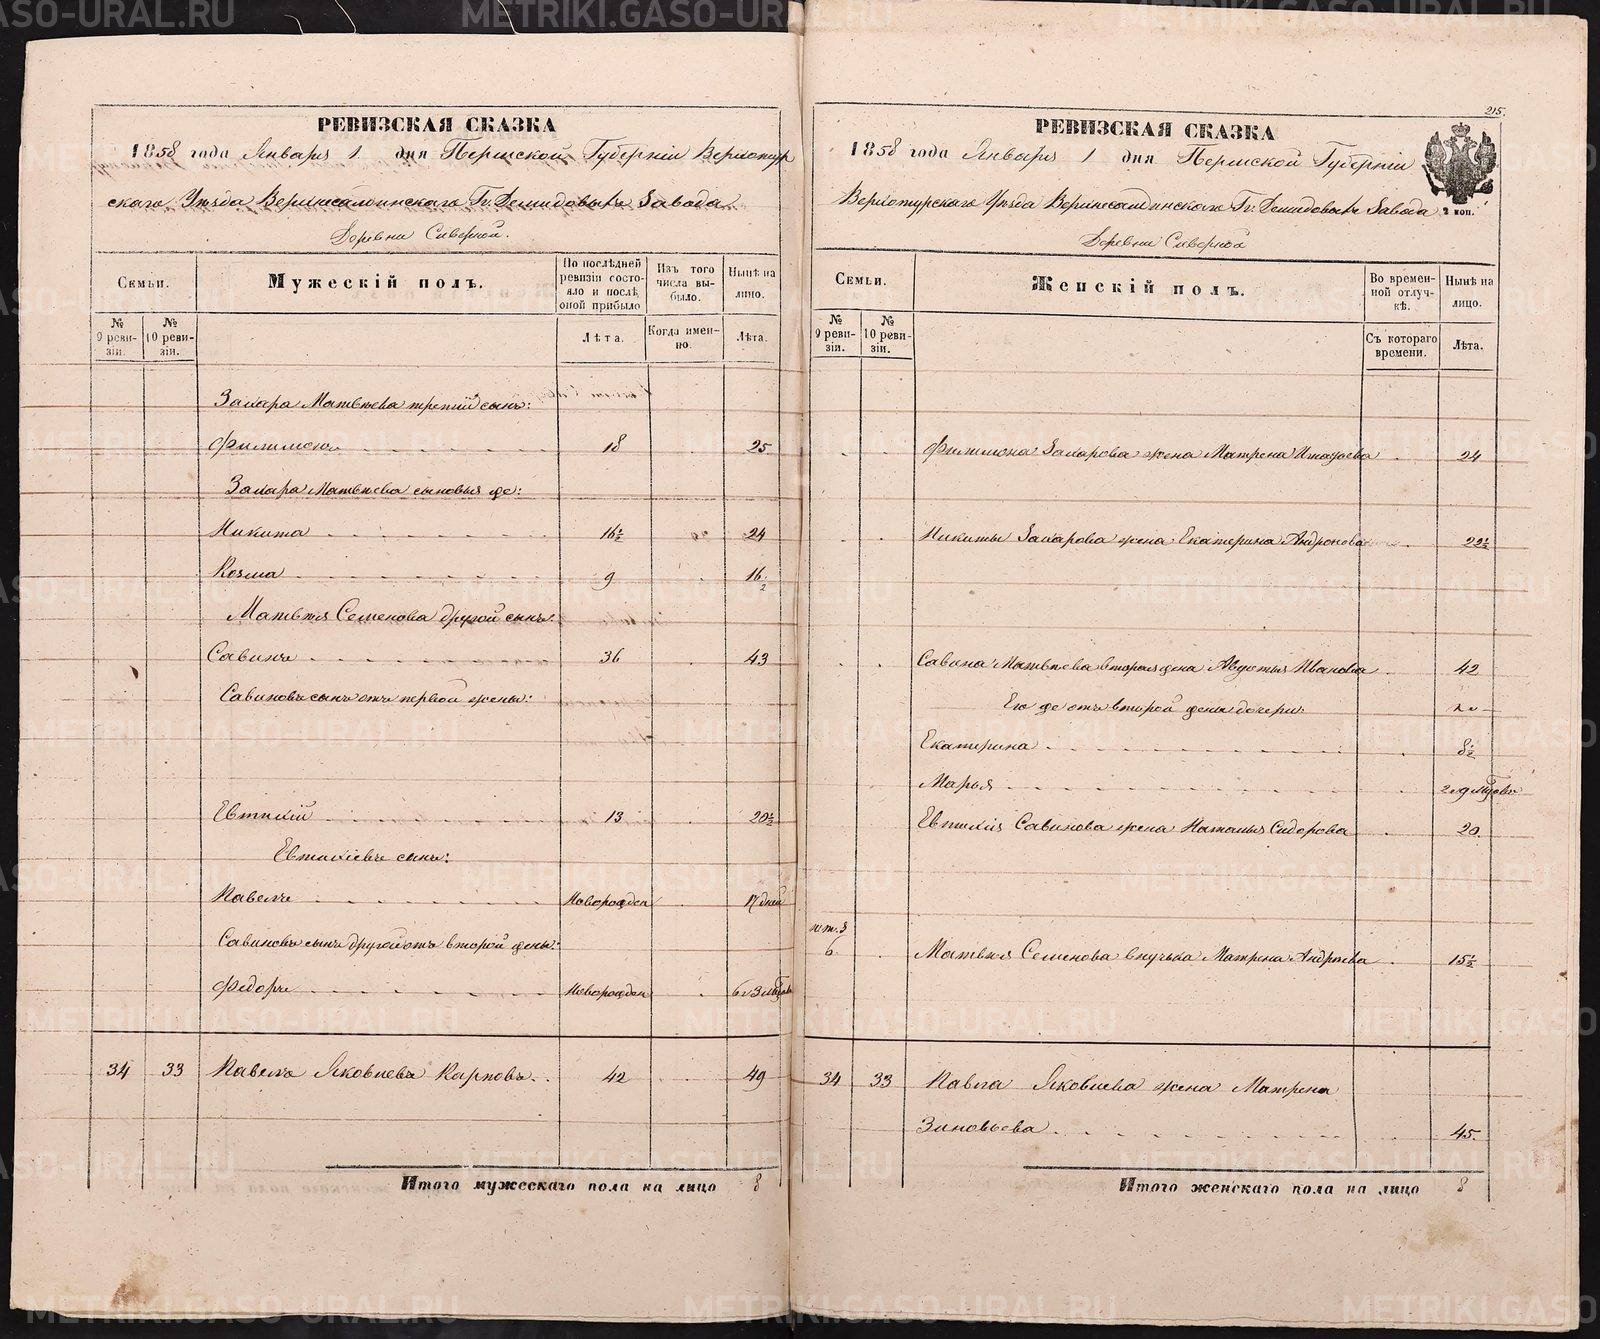 РЕВИЗСКАЯ СКАЗКА
1858 года Января 1 дня Пермской Губернiи Верхотур
скаго Уѣзда Верхнесалдинскаго Гг. Демидовыхъ Завода
Деревни Сѣверной.
Семьи.
Мужескiй полъ.
По послѣдней ревизiи состояло и послѣ оной прибыло
Изъ того числа выбыло.
Нынѣ на лицо.
№ 9 ревизiи.
№ 10 ревизiи.
Лѣта.
Когда именно.
Лѣта.
Захара Матвѣева третiй сынъ:
Филимонъ 18 25
Захара Матвѣева сыновья же:
Никита 16½ 24
Козма 9 16½
Матвѣя Семенова другой сынъ:
Савинъ 36 43
Савиновъ сынъ отъ первой жены:
Евтихiй 13 20½
Евтихiевъ сынъ:
Павелъ Новорожден 17 дней
Савиновъ сынъ другой отъ второй жены:
Федоръ Новорожден
34 33 Павелъ Яковлевъ Карповъ. 42 49
Итого мужескаго пола на лицо 8
215.
РЕВИЗСКАЯ СКАЗКА
1858 года Января 1 дня Пермской Губернiи
Верхотурскаго Уѣзда Верхнесалдинскаго Гг. Демидовыхъ Завода
2 коп.
Деревни Сѣверной
Семьи.
Женскiй полъ.
Во временной отлучкѣ.
Нынѣ на лицо.
№ 9 ревизiи.
№ 10 ревизiи.
Съ котораго времени.
Лѣта.
Филимона Захарова жена Матрена 24
Никиты Захарова жена Екатерина Андронова 22½
Савина Матвѣева вторая жена Авдотья Иванова 42
Его же отъ второй жены дочери:
Екатерина 8½
Марья
Евтихiя Савинова жена Наталья Сидорова 20.
6 Матвѣя Семенова внучька Матрена Андреева 15½
34 33 Павла Яковлева жена Матрена
Зиновьева 45.
Итого женскаго пола на лицо 8
METRIKI.GASO-URAL.RU